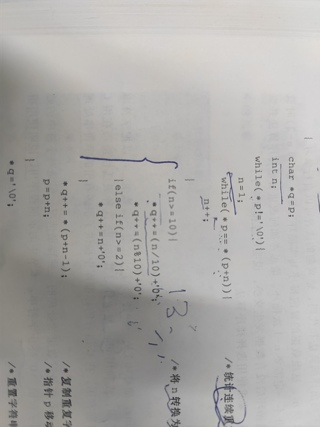 char *q=p;
int n;
while(*p!='\0'){
n=1;
while(*p==*(p+n)){ /*统计连续
n++;
}
if(n>=10){ /*将n转换为
*q++=(n/10)+'0';
*q++=(n%10)+'0';
}else if(n>=2){
*q++=n+'0';
}
*q++=*(p+n-1); /*复制重复字
p=p+n; /*指针p移
}
*q='\0'; /*重置字符